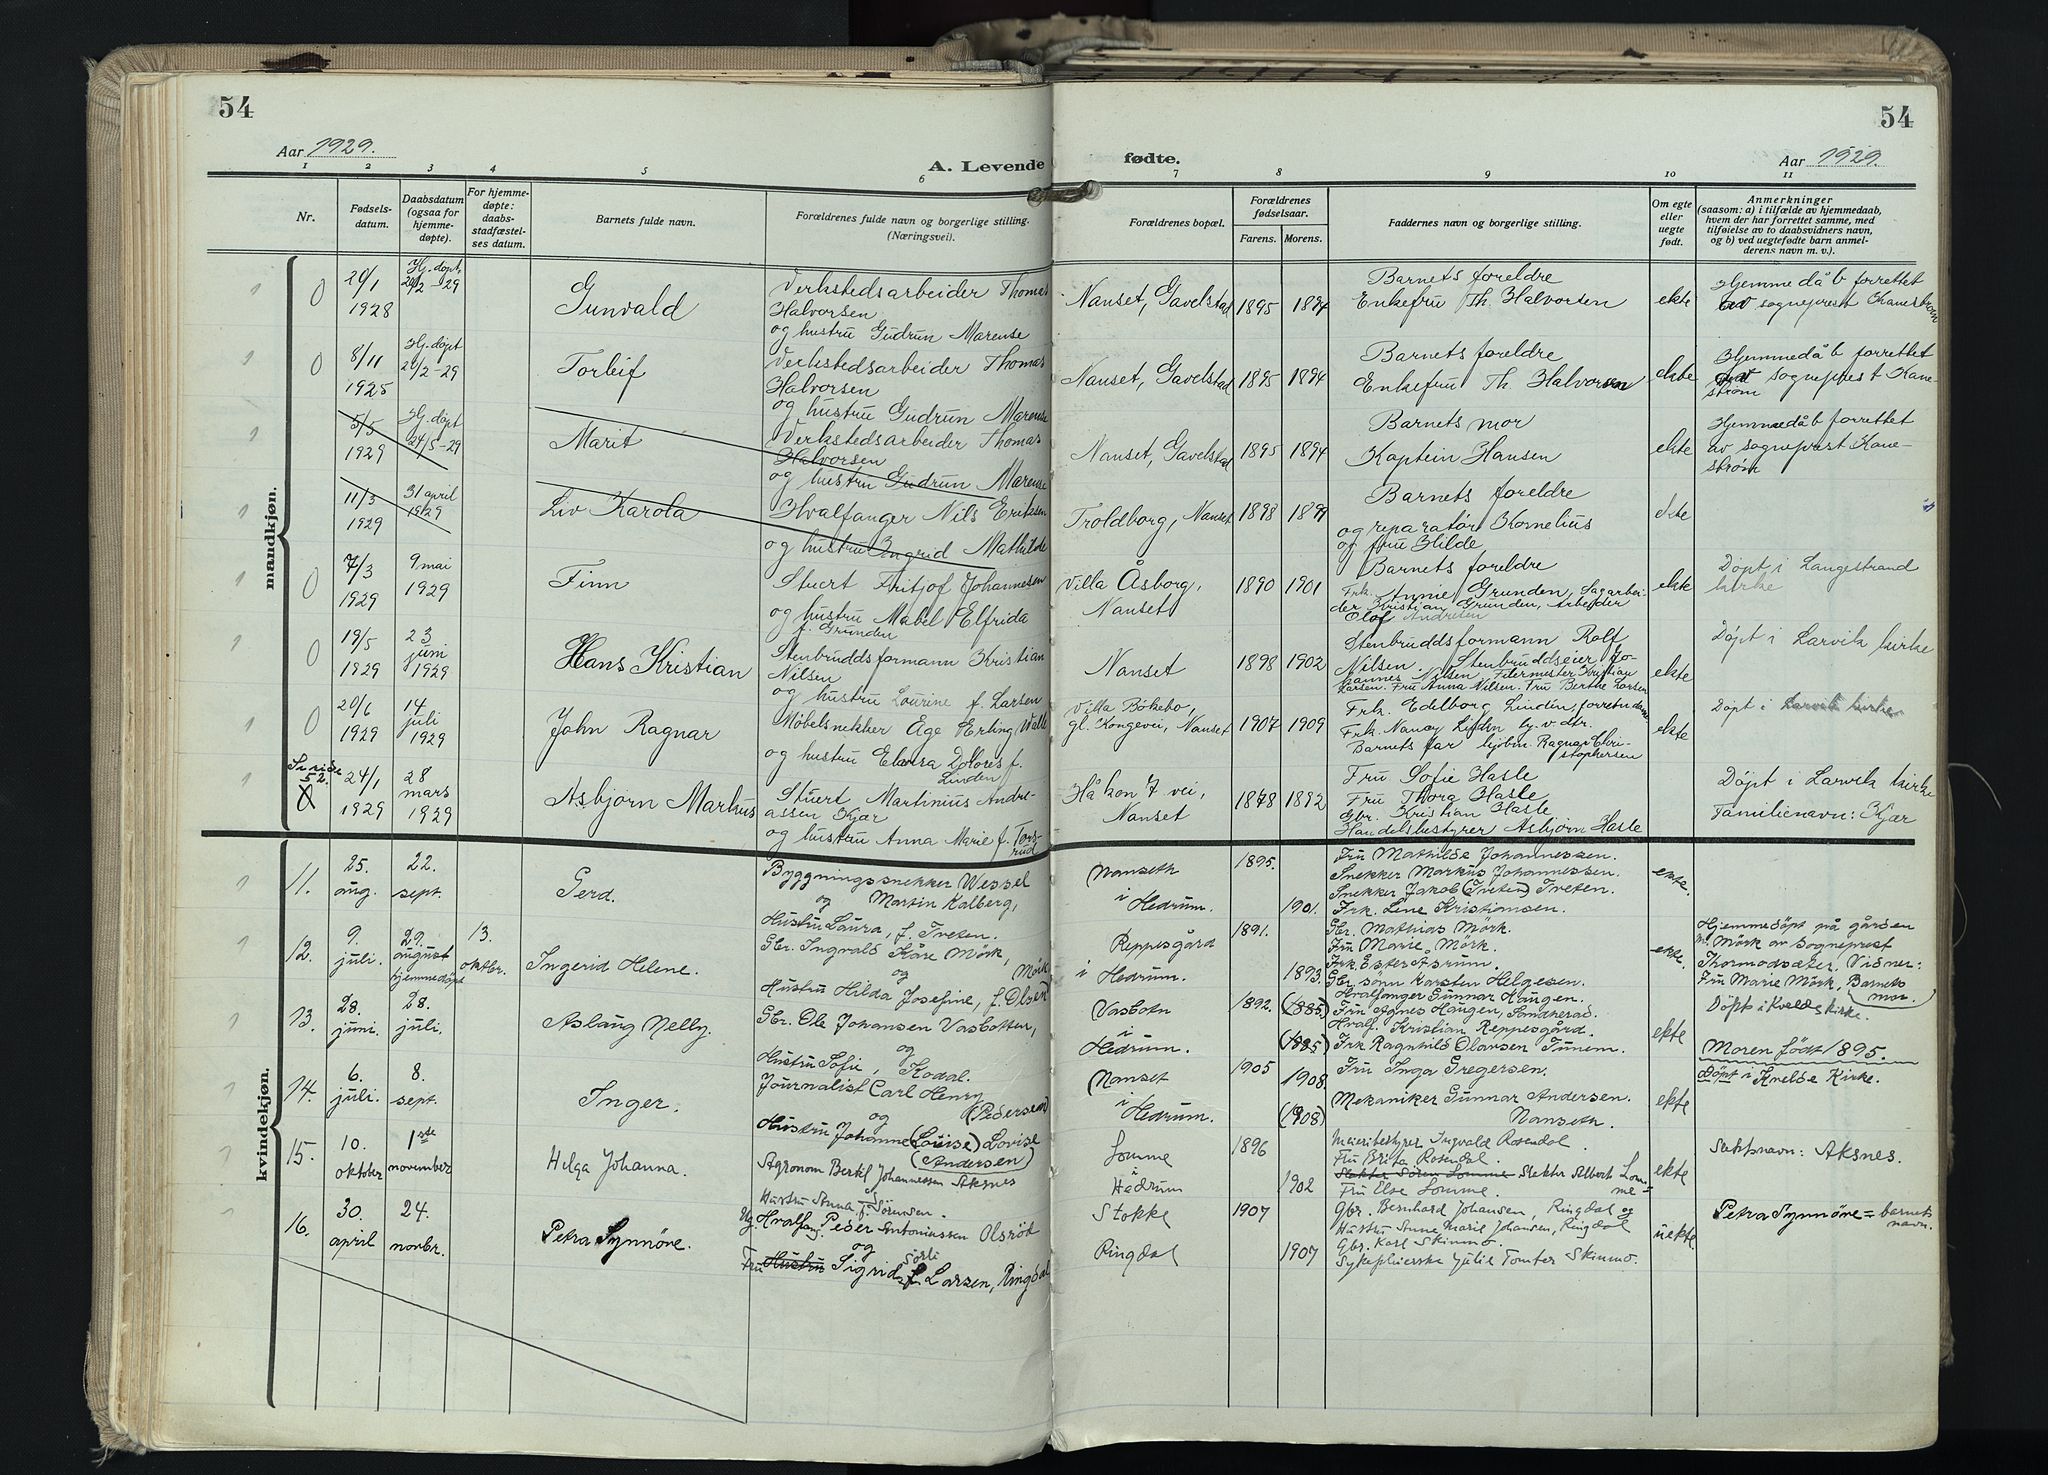 54
54
Aar 1929.
A. Levende
fødte.
Aar 1929.
1 2 3 4 5 6 7 8 9 10 11
Nr.
Fødsels-
datum.
Daabsdatum
(ogsaa for
hjemme-
døpte).
For hjemme-
døpte:
daabs-
stadfæstel-
ses datum.
Barnets fulde navn.
Forældrenes fulde navn og borgerlige stilling.
(Næringsvei).
Forældrenes bopæl.
Forældrenes
fødselsaar.
Farens. Morens.
Faddernes navn og borgerlige stilling.
Om egte
eller
uegte
født.
Anmerkninger
(saasom: a) i tilfælde av hjemmedaab,
hvem der har forrettet samme, med
tilføielse av to daabsvidners navn,
og b) ved uegtefødte barn anmel-
derens navn m. v.).
mandkjøn.
0
20/1
1928
Hj. døpt
20/2-29
Gunvald
Verkstedsarbeider Thomas
Halvorsen
og hustru Gudrun Marense
Nanset, Gavelstad
1895 1894
Barnets foreldre
Enkefru Th. Halvorsen
ekte
Hjemmedåb forrettet
av sogneprest Kanestrøm
0
8/11
1925
Hj. døpt
20/2-29
Torleif
Verkstedsarbeider Thomas
Halvorsen
og hustru Gudrun Marense
Nanset, Gavelstad
1895 1894
Barnets foreldre
Enkefru Th. Halvorsen
ekte
Hjemmedåb forrettet
av sogneprest Kane-
strøm
5/5
1929
Hj. døpt
24/5-29
Marit
Verkstedsarbeider Thomas
Halvorsen
og hustru Gudrun Marense
Nanset, Gavelstad
1895 1894
Barnets mor
Kaptein Hansen
ekte
Hjemmedåb forrettet
av sogneprest Kane-
strøm
11/3
1929
31 april
1929
Liv Karola
Hvalfanger Nils Eriksen
og hustru Ingrid Mathilde
Troldborg, Nanset
1898 1899
Barnets foreldre
og reparatør Kornelius
og fru Hilde
ekte
0
7/3
1929
9 mai
1929
Finn
Stuert Fritjof Johannesen
og hustru Mabel Elfrida
f. Grunden
Villa Åsborg,
Nanset
1890 1901
Barnets foreldre
Frk. Annie Grunden, Sagarbei-
der Kristian Grunden, Arbeider
Olof Andresen
ekte
Døpt i Langestrand
kirke
0
19/5
1929
23
juni
1929
Hans Kristian
Stenbruddsformann Kristian
Nilsen
og hustru Lourine f. Larsen
Nanset
1898 1902
Stenbruddsformann Rolf
Nilsen. Stenbruddseier Jo-
hannes Nilsen. Filermester Kristian
Larsen. Fru Anna Nilsen. Fru Berthe Larsen
ekte
Døpt i Larvik kirke
0
20/6
1929
14
juli
1929
John Ragnar
Møbelsnekker Åge Erling Walle
og hustru Elvira Dolores f.
Linden
Villa Bökebo,
gl. Kongevei, Nanset
1907 1909
Frk. Edelborg Linden, forretn.dame
Frk. Nancy Linden
Barnets far Ragnar Chri-
stophersen
ekte
Døpt i Larvik kirke
Se side
52.
24/1
1929
28
mars
1929
Asbjørn Markus
Stuert Martinius Andre-
assen Kjær
og hustru Anna Marie f. Tors-
rud
Håkon 7 vei,
Nanset
1878 1892
Fru Sofie Hasle
Fru Thora Hasle
Gbr. Kristian Hasle
Handelsbestyrer Asbjørn Hasle
Døpt i Larvik kirke
Familienavn: Kjær
kvindekjøn.
11.
25.
aug.
22.
sept.
Gerd.
Byggningssnekker Wessel
og Martin Kalberg,
Hustru Laura, f. Tveten.
Nanseth
i
Hedrum.
1895.
1901.
Fru Mathilde Johannessen.
Snekker Markus Johannessen.
Snekker Jakob (Tveten) Tveten.
Frk. Line Kristiansen.
ekte.
12.
9.
juli.
29.
august
hjemmedöpt
13.
oktbr.
Ingerid Helene.
Gbr. Ingvald Kåre Mörk,
og
Hustru Hilda Josefine, f. Olsen Mörk
Reppesgård
i Hedrum.
1891.
1893.
Gbr. Mathias Mörk.
Fru Marie Mörk.
Frk. Ester Ötsrum.
Gbr. sönn Karsten Helgesen.
ekte.
Hjemmedöpt på gården
Mörk av Sogneprest
Thormodsæter. Vidner:
Fru Marie Mörk, Barnets
mor.
13.
28.
juni.
28.
juli.
Aslaug Nelly.
Gbr. Ole Johansen Vasbotten,
og
Hustru Sofie, Kodal.
Vasbotn
i
Hedrum.
1892.
(1885)
(1885)
Hvalfanger Gunnar Haugen.
Fru Agnes Haugen, Sandherad.
Hvalf. Kristian Reppesgård.
Frk. Ragnhild Olausen Tunem.
ekte
Döpt i Kvelds kirke.
Moren født 1895.
14.
6.
juli.
8.
sept.
Inger.
Journalist Carl Henry
og (Pedersen)
Hustru Johanne (Louise) Lovise
(Andersen)
Nanset
i
Hedrum.
1905
1908.
(1908)
Fru Inga Gregersen.
Mekaniker Gunnar Andersen.
Nanseth.
ekte
Döpt i Knelde Kirke.
15.
10.
oktober
1ste
november
Helga Johanna.
Agronom Bertel Johannessen Aksnes
og
Hustru Anna f. Sörensen.
Lomme
i
Hedrum
1896
1902
Meieribestyrer Ingvald Rosendal.
Fru Erita Rosendal.
Slekter Sören Lomme Slekter Albert Lom-
Fru Else Lomme. me=
ekte
Slektsnavn: Aksnes.
16.
30.
april
24.
novbr.
Petra Synnöve.
Ug. Hvalfang. Peder Antoniussen Olsröd
og
Fru Hustru Sigrid Sörli f. Larsen, Ringdal
Stokke
Ringdal
1907
1907
Gbr. Bernhard Johansen, Ringdal og
Hustru Anne Marie Johansen, Ringdal
Gbr. Karl Skinmo.
Sykepleierske Julie Tomter Skinmo.
uekte.
Petra Synnöve = barnets
navn.